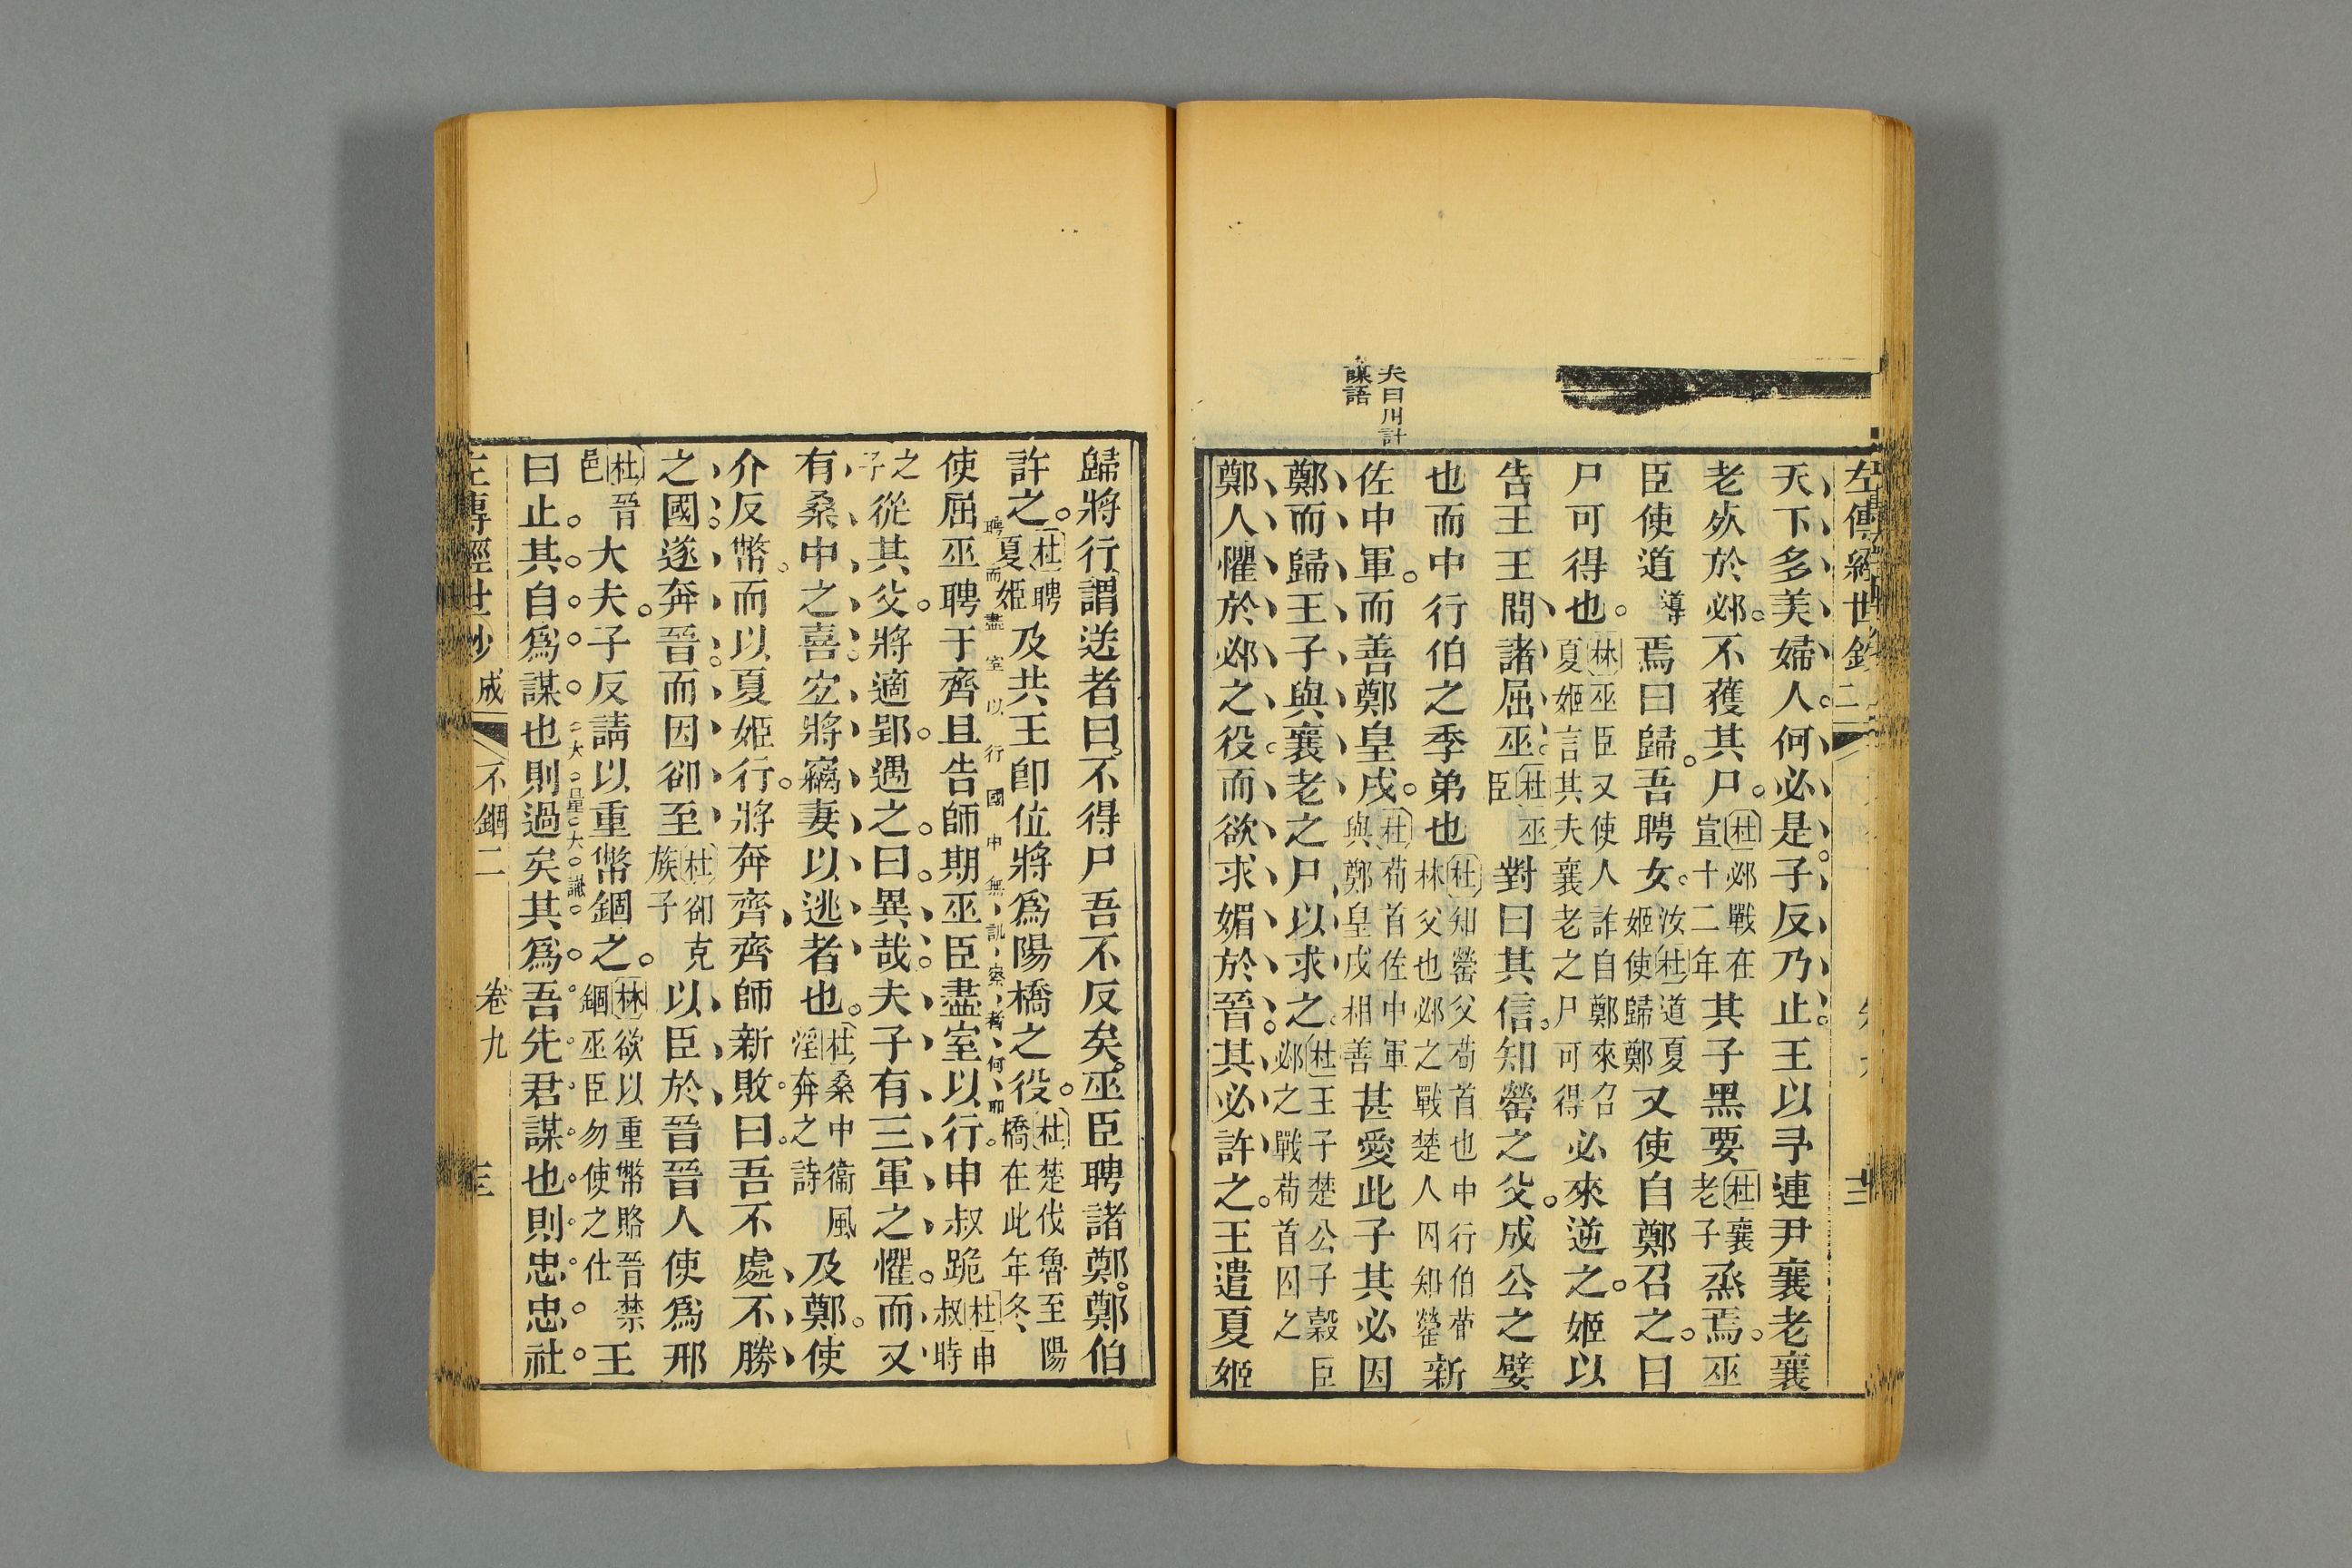 夫曰川計
謀語
左傳經世鈔
天下多美婦人何必是子反乃止王以予連尹襄老襄
老死於邲不獲其尸杜邲戰在宣十二年其子黑要杜襄老子烝焉巫
臣使道導焉曰歸吾聘女汝杜道夏姬使歸鄭又使自鄭召之曰
尸可得也林巫臣又使人詐自鄭來召夏姬言其夫襄老之尸可得必來逆之姬以
告王王問諸屈巫杜巫臣對曰其信知罃之父成公之嬖
也而中行伯之季弟也杜知罃父荀首也中行伯荀林父也邲之戰楚人囚知罃新
佐中軍而善鄭皇戌杜荀首佐中軍與鄭皇戌相善甚愛此子其必因
鄭而歸王子與襄老之尸以求之杜王子楚公子穀臣邲之戰荀首囚之
鄭人懼於邲之役而欲求媚於晉其必許之王遣夏姬
歸將行謂送者曰不得尸吾不反矣巫臣聘諸鄭鄭伯
許之杜聘夏姬及共王卽位將爲陽橋之役杜楚伐魯至陽橋在此年冬
聘而盡室以行國中無訊察者何耶
使屈巫聘于齊且告師期巫臣盡室以行申叔跪杜申叔時
之子從其父將適郢遇之曰異哉夫子有三軍之懼而又
有桑中之喜宜將竊妻以逃者也杜桑中衞風淫奔之詩及鄭使
介反幣而以夏姬行將奔齊齊師新敗曰吾不處不勝
之國遂奔晉而因郤至杜郤克族子以臣於晉晉人使爲邢
大夫杜晉邑子反請以重幣錮之林欲以重幣賂晉禁錮巫臣勿使之仕王
曰止其自爲謀也則過矣其爲吾先君謀也則忠忠社
左傳經世鈔 成 不錮二 卷九